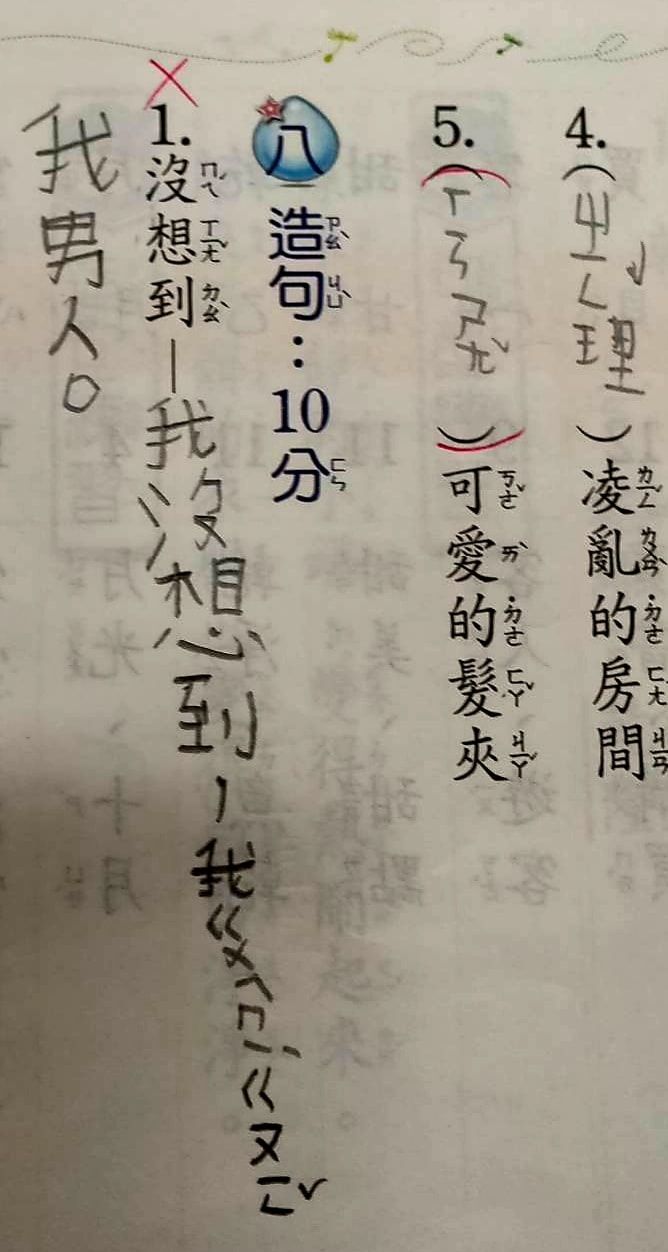 4.(ㄓㄥˇ理)凌亂的房間
5.(ㄒㄣㄕㄤˇ)可愛的髮夾
八 造句:10分
1.沒想到—我沒想到,我ㄍㄨㄟㄇㄧˋㄍㄡㄧㄣˇ
我男人。